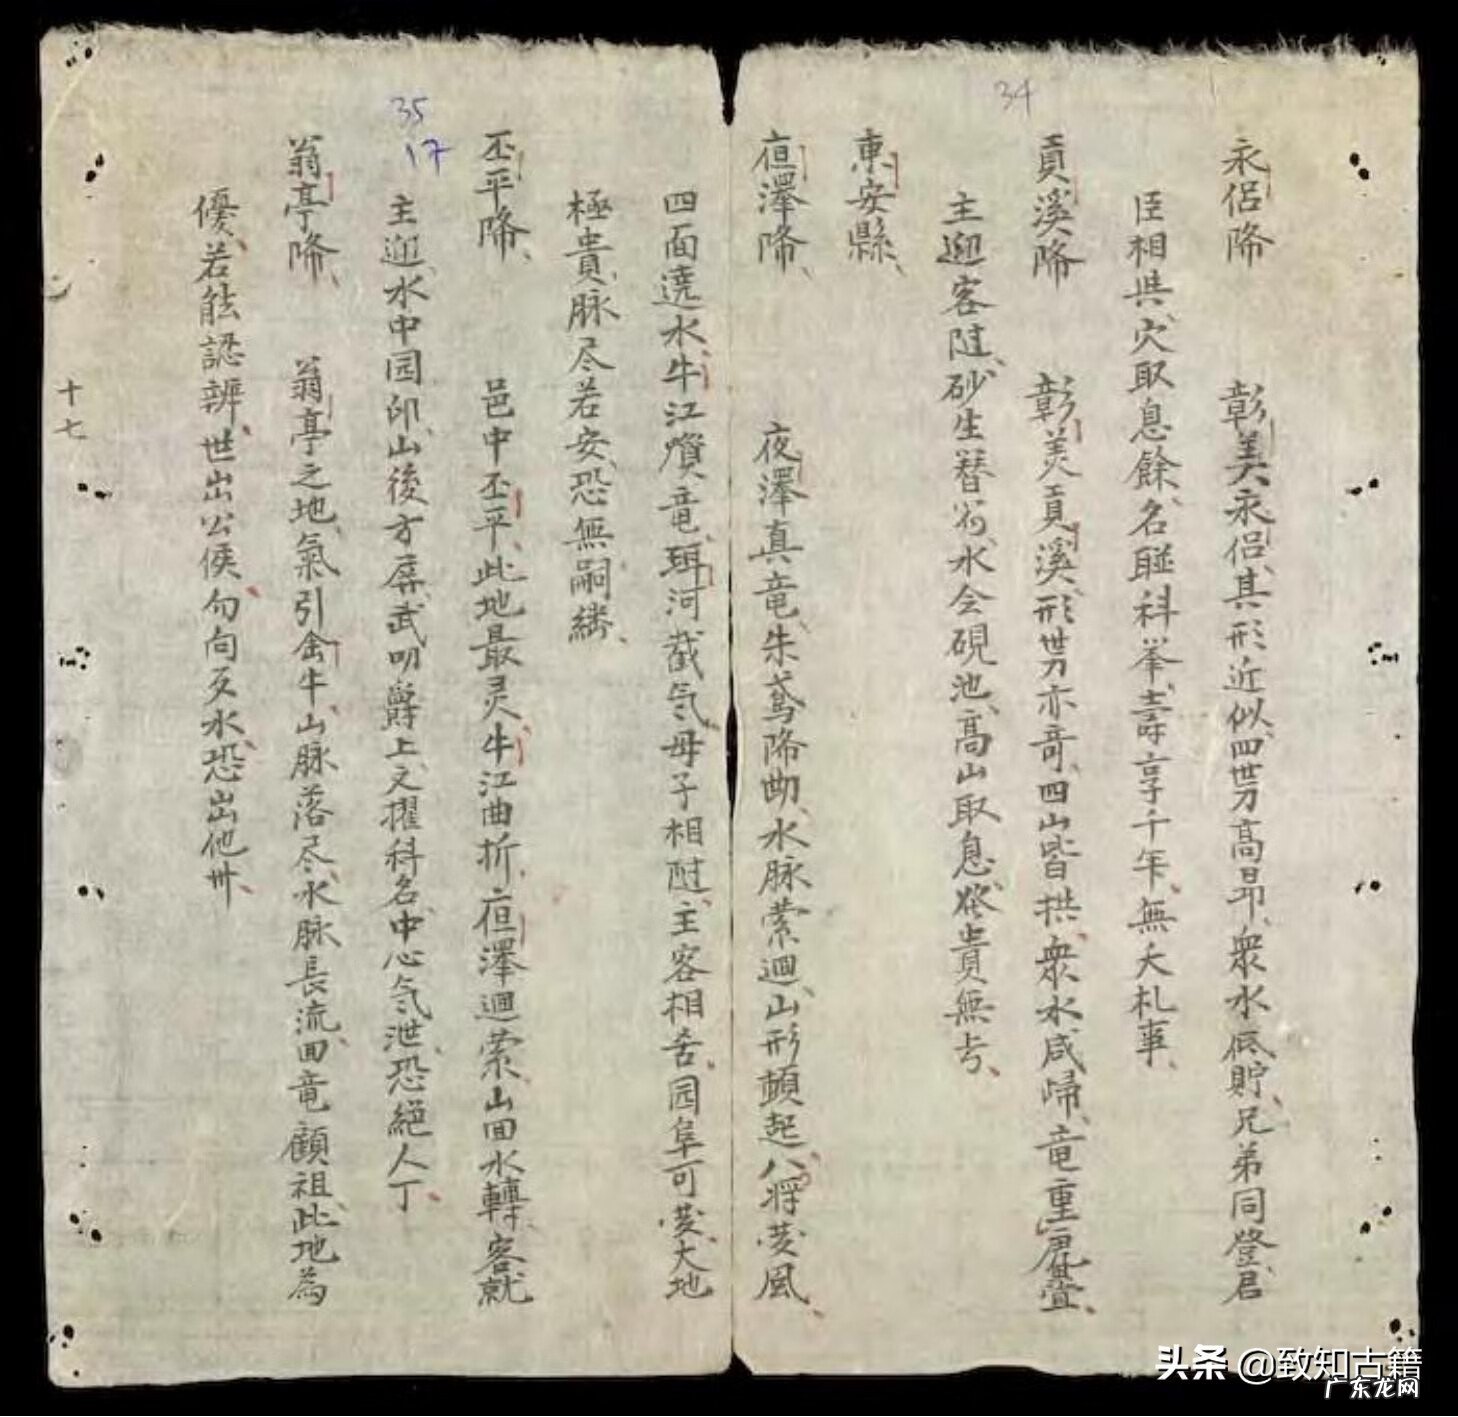 34
永侶降 彰美永侶、其形近似、四势高昂、衆水低貯、兄弟同登、君
臣相共、穴取息餘、名聯科举、壽享千年、無夭札事、
貢溪降 彰美貢溪、形势亦奇、四山皆拱、衆水咸歸、竜重虎疊、
主迎客随、砂生替笏、水会硯池、高山取息、發貴無亏、
東安縣、
夜澤降、 夜澤真竜、朱鳶降勘、水脉縈迴、山形頓起、八将發風、
四面遶水、牛江濆竜、珥河截气、母子相随、主客相舍、园阜可發、大地
極貴、脉尽若安、恐無嗣繼、
35
17
丕平降、 邑中丕平、此地最灵、牛江曲折、夜澤迴縈、山回水轉、客就
主迎、水中园印、山後方屏、武叨爵上、文擢科名、中心气泄、恐絕人丁、
翁亭降、 翁亭之地、氣引禽牛、山脉落尽、水脉長流、回竜顧祖、此地為
優、若能認辨、世出公侯、勿向反水、恐出他州、
十七
头条 @致知古籍
广东龙网